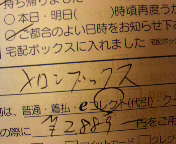 持ち帰りました
○本日・明日( )時頃再度うか
○ご都合のよい日時をお知らせ下
宅配ボックスに入れました
メロンブックス
は、普通・着払・e-コレクト(代引)・ク
の際に ¥2,889 円をご用